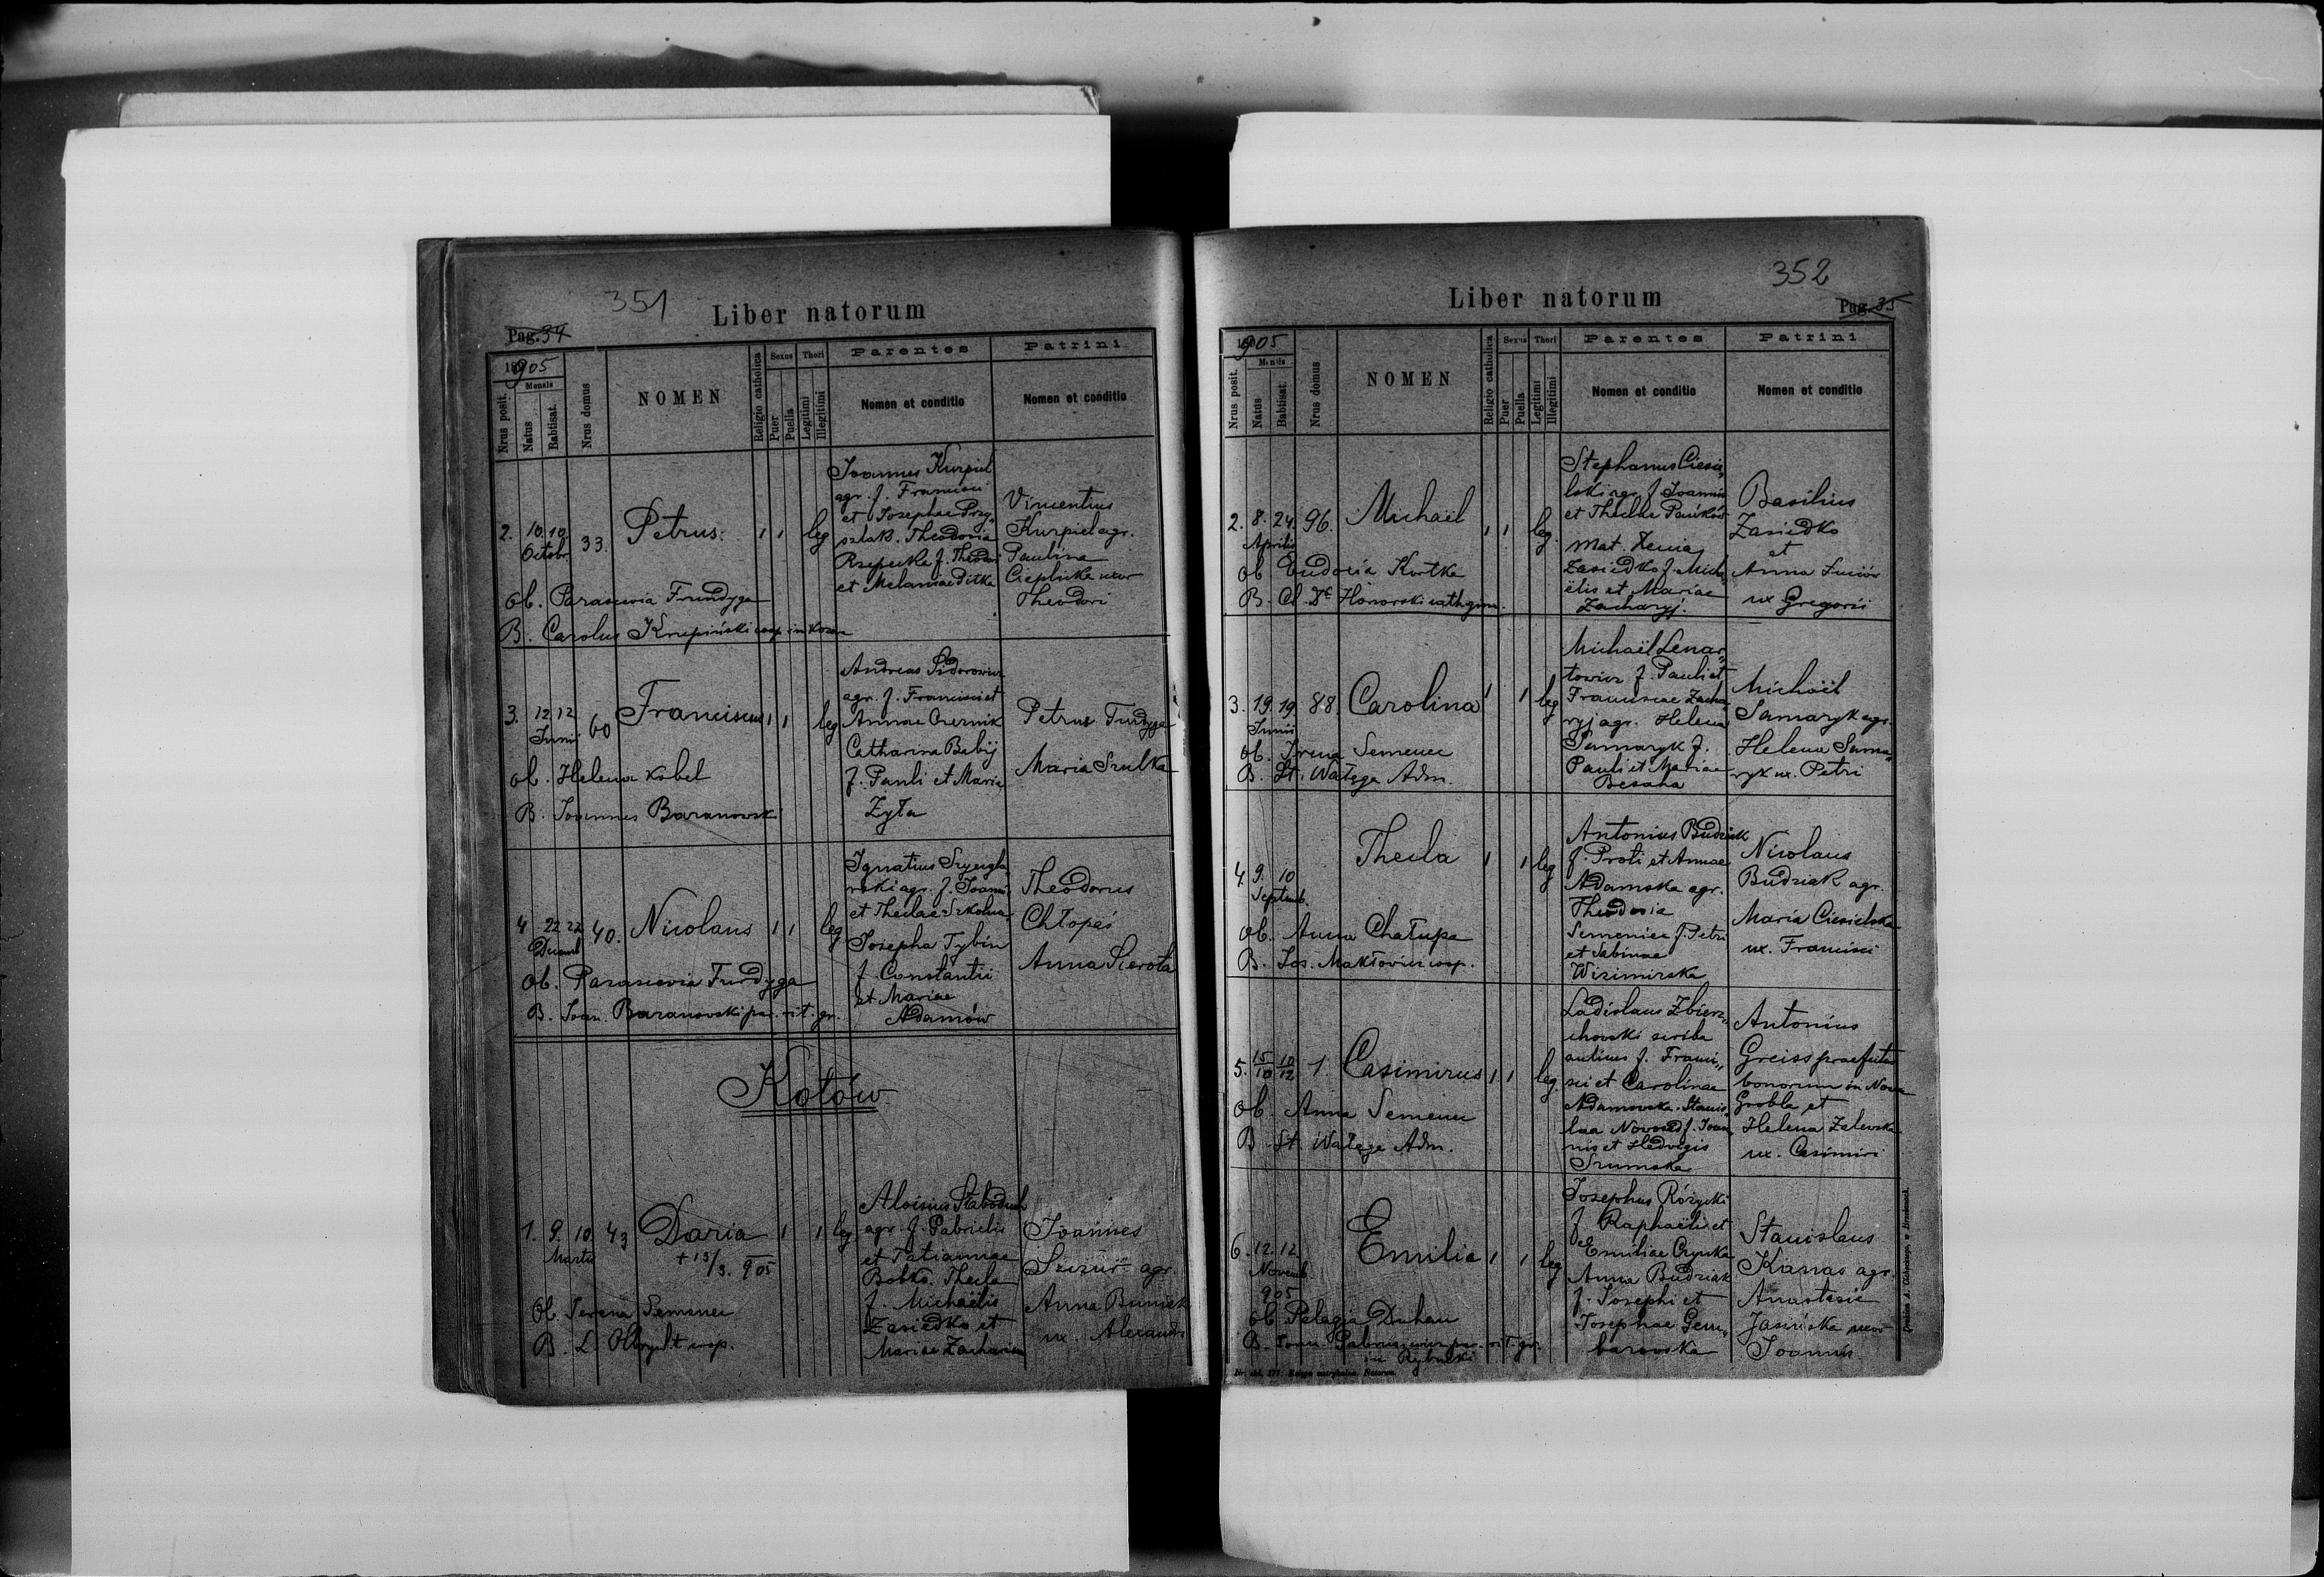 351
Liber natorum
Pag. 34
1905
Mensis
Nrus posit.
Natus
Babtisat.
Nrus domus
NOMEN
Religio catholica
Sexus
Puer
Puella
Thori
Legitimi
Illegitimi
Parentes
Nomen et conditio
Patrini
Nomen et conditio
2. 10. 10. 33. Petrus. 1 1 leg
Octobr.
Joannes Kurpiel
agr. f. Francisci
et Josephae Przy„
szlak. Theodosia
Rzepecka f. Theodori
et Melaniae Ditka
Vincentius
Kurpiel agr.
Paulina
Cieplicka uxor
Theodori
Ob. Parascevia Furdyga
B. Carolus Krupiński coop. in
3. 12. 12 60 Franciscus 1 1 leg
Junii
Andreas Sidorowicz
agr. f. Francisci et
Annae Czernik
Catharina Babij
f. Pauli et Maria
Zyła
Petrus Furdyga
Maria Szulka
Ob. Helena Kobel
B. Joannes Baranowski
4 22 22 40. Nicolaus 1 1 leg
Decemb
Ignatius
rski agr. f. Joannis
et Theclae Szkolna
Josepha Tybin
f. Constantii
et Mariae
Adamów
Theodorus
Chłopaś
Anna Sierota
Ob. Parascevia Furdyga
B. Joan. Baranowski par. rit. gr.
Kotów
1. 9. 10. 43 Daria 1 1 leg
Martii
+ 13/3. 905
Aloisius Słaboduch
agr. f. Gabrielis
et Tatiannae
Bobko. Thecla
f. Michaëlis
Zasiedko et
Mariae Zachariae
Joannes
agr.
Anna Buniak
ux. Alexandri
Ob. Serena Semenec
B. L. Olbrycht coop.
352
Liber natorum
Pag. 35
1905
Mensis
Nrus posit.
Natus
Babtisat.
Nrus domus
NOMEN
Religio catholica
Sexus
Puer
Puella
Thori
Legitimi
Illegitimi
Parentes
Nomen et conditio
Patrini
Nomen et conditio
2. 8. 24. 96. Michaël 1 1 leg.
Aprilis
Stephanus Ciesie„
lski agr. f. Joannis
et Theclae Pańków
Mat. Xenia
Zasiedko f. Mich„
ëlis et Mariae
Zacharyj.
Basilius
Zasiedko
et
Anna
ux Gregorii
Ob Eudocia Kortka
B. Cl. Dr Honorski cath. gimn.
3. 19. 19. 88. Carolina 1 1 leg
Junii
Michaël Lenar„
towicz f. Pauli et
Franciscae Zacha„
ryj agr. Helena
Samaryk f.
Pauli et Mariae
Besaha
Michaël
Samaryk agr.
Helena Sama„
ryk ux. Petri
Ob. Irena Semenec
B. St. Wałęga Adm.
4. 9. 10 Thecla 1 1 leg
Septemb.
Antonius Budziak
f. Proti et Annae
Adamska agr.
Theodosia
Semeniec f. Petri
et Sabinae
Wizimirska
Nicolaus
Budziak agr.
Maria Ciesielska
ux. Francisci
Ob. Anna Chałupa
B. Jos. Makłowicz coop.
5. 15/10 10/12 1. Casimirus 1 1 leg.
Ladislaus Zbierz„
chowski scriba
aulicus f. Franci„
sci et Carolinae
Adamowska. Stanis„
laa Nowosad f. Joan„
nis et Hedvigis
Szumska
Antonius
Greiss praefectus
bonorum in Nowa
Grobla et
Helena Zalewska
ux. Casimiri
Ob. Anna Semenec
B St. Wałęga Adm.
6. 12. 12 Emilia 1 1 leg
Novemb.
905
Josephus Różycki
f. Raphaëlis et
Emiliae
Anna Budziak
f. Josephi et
Josephae Gem„
barowska
Stanislaus
Kanas agr.
Anastasia
Jasińska uxor
Joannis
Ob Pelagia Duhan
B. Joan. par. rit. gr.
in
Nr. skl. 277. Księga metrykalna. Natorum.